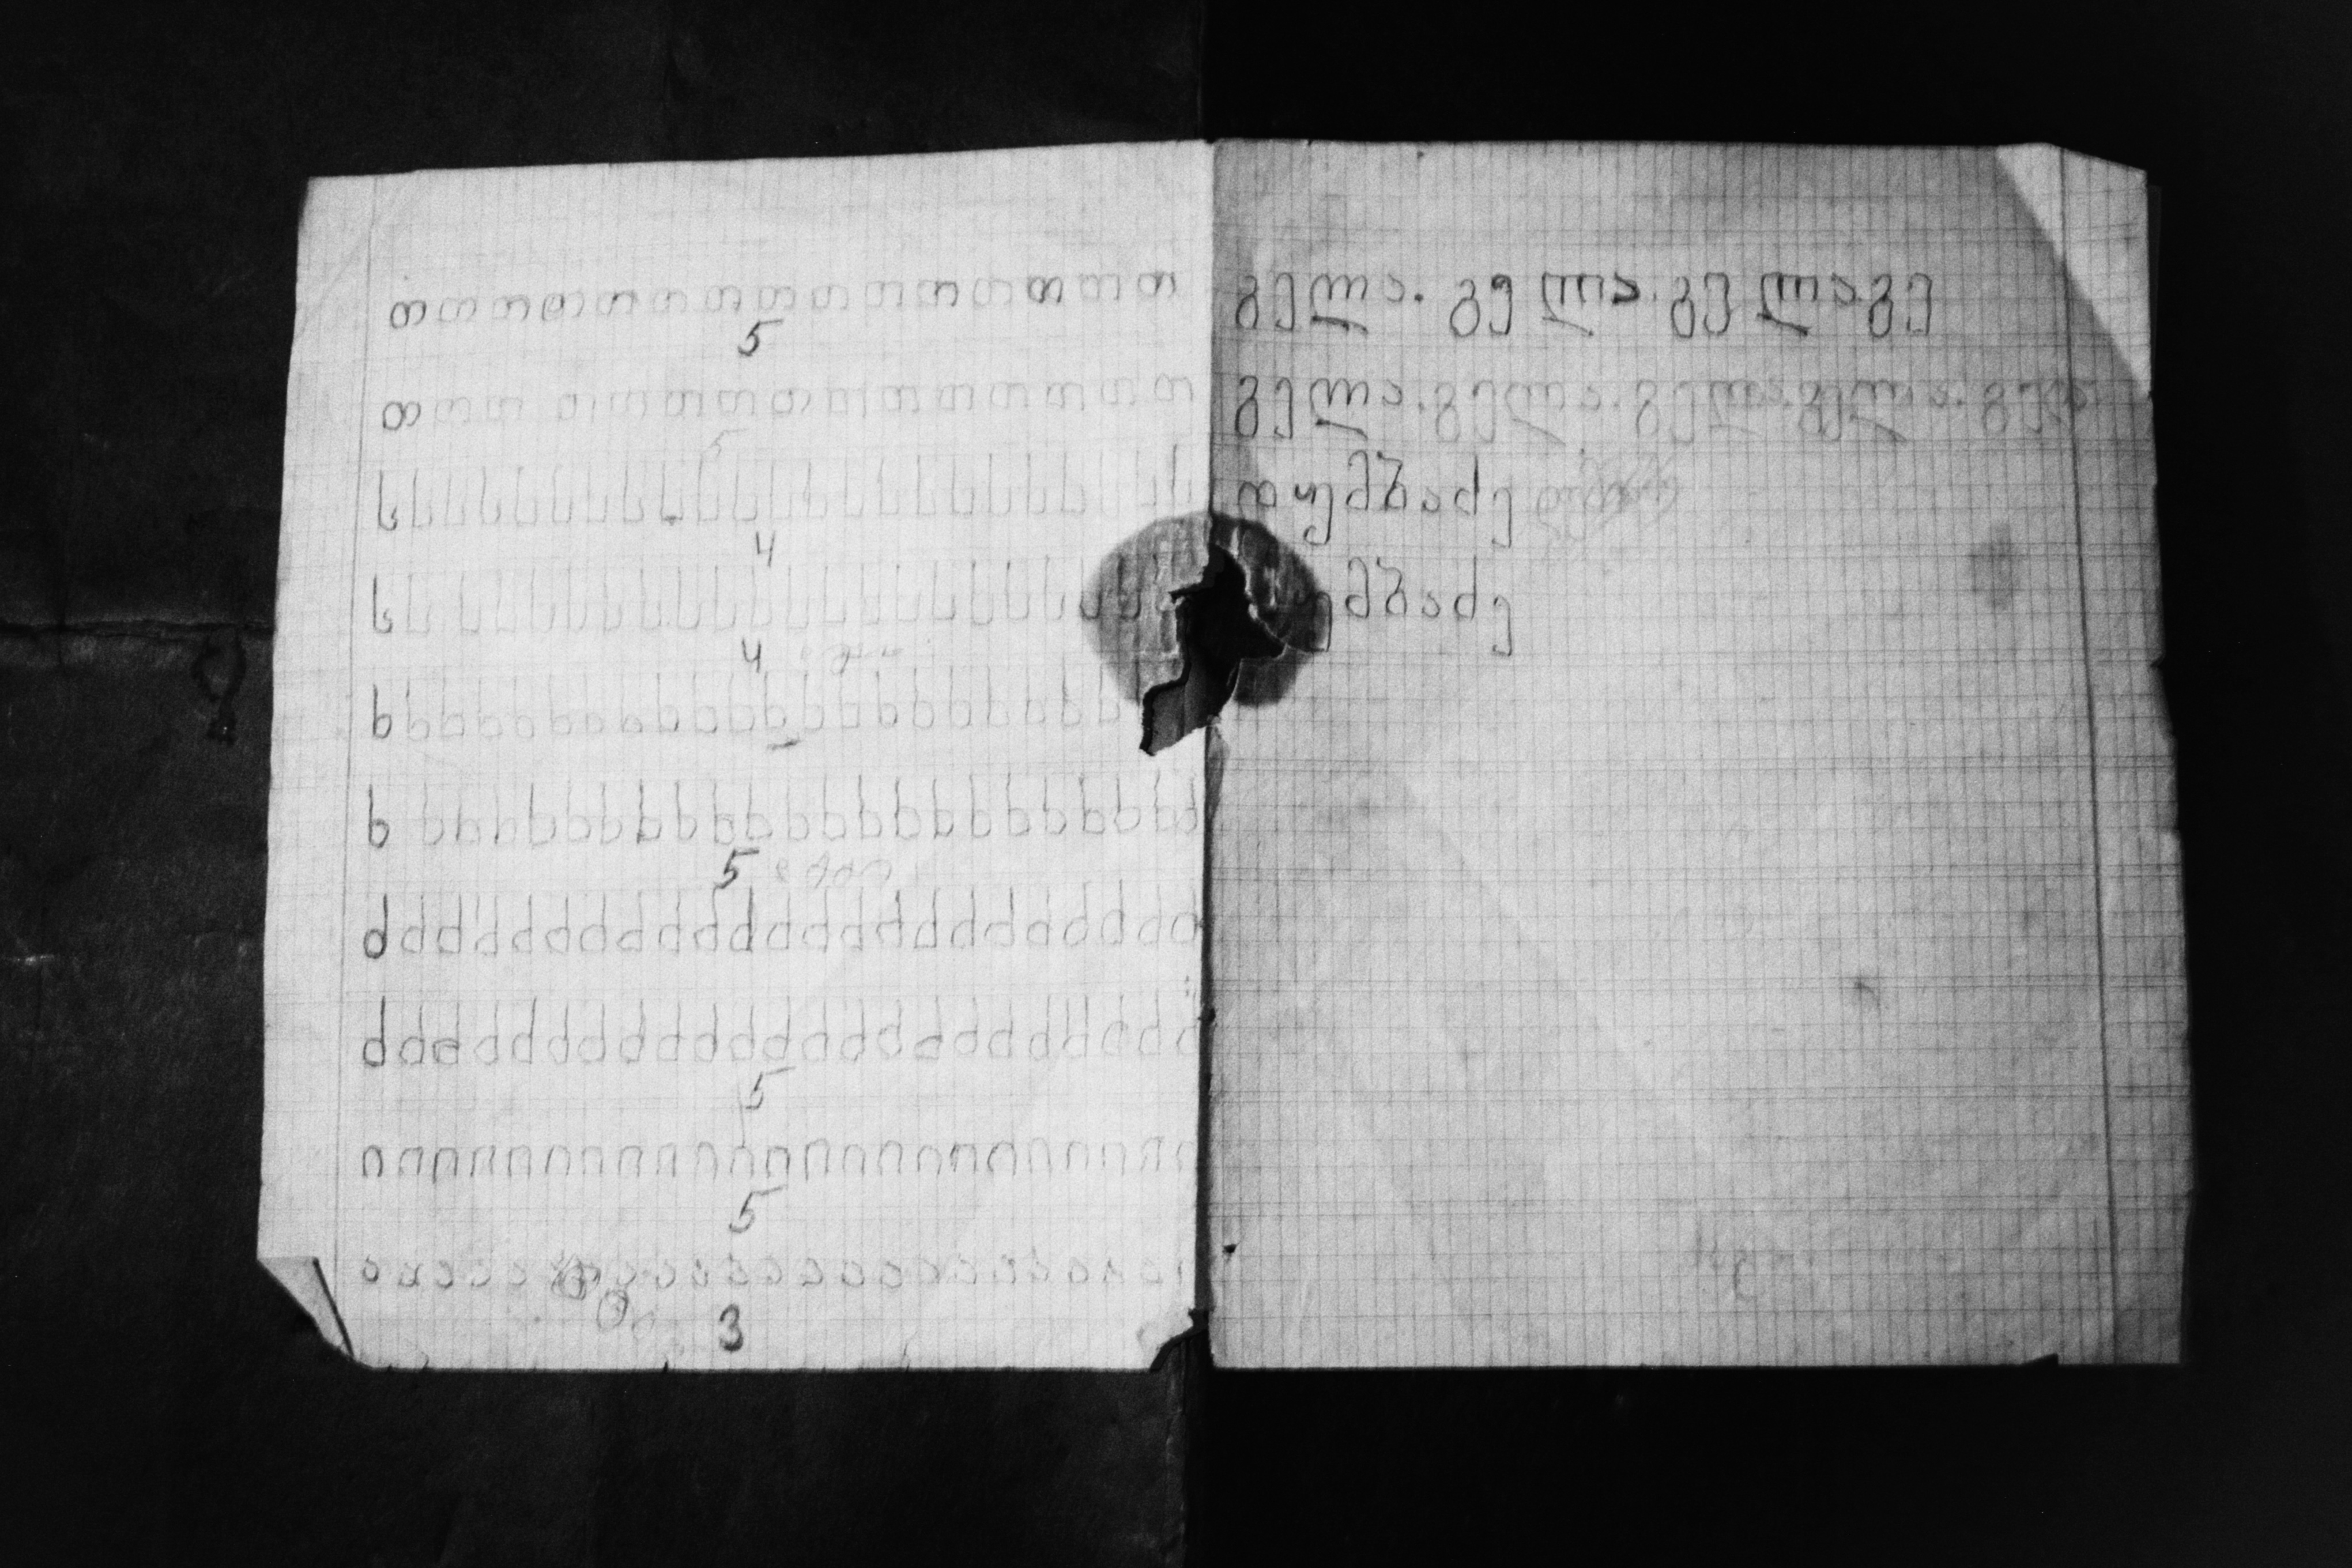 თ თ თ თ თ თ თ თ თ თ თ თ თ თ თ
5
თ თ თ თ თ თ თ თ თ თ თ თ თ თ თ
5
ს ს ს ს ს ს ს ს ს ს ს ს ს ს ს ს ს ს ს ს ს ს ს
4
ს ს ს ს ს ს ს ს ს ს ს ს ს ს ს ს ს ს ს ს ს ს
4
ხ ხ ხ ხ ხ ხ ხ ხ ხ ხ ხ ხ ხ ხ ხ ხ ხ ხ ხ ხ
ხ ხ ხ ხ ხ ხ ხ ხ ხ ხ ხ ხ ხ ხ ხ ხ ხ ხ ხ ხ ხ ხ
5
ძ ძ ძ ძ ძ ძ ძ ძ ძ ძ ძ ძ ძ ძ ძ ძ ძ ძ ძ ძ ძ ძ ძ
ძ ძ ძ ძ ძ ძ ძ ძ ძ ძ ძ ძ ძ ძ ძ ძ ძ ძ ძ ძ ძ ძ ძ
5
ი ი ი ი ი ი ი ი ი ი ი ი ი ი ი ი ი ი ი ი ი ი ი
5
ა ა ა ა ა ა ა ა ა ა ა ა ა ა ა ა ა ა ა ა ა ა
3
გელა. გე ლა. გე ლაგე
გელა. გელა. გელა. გელა. გელა
თუმბაძე
უმბაძე